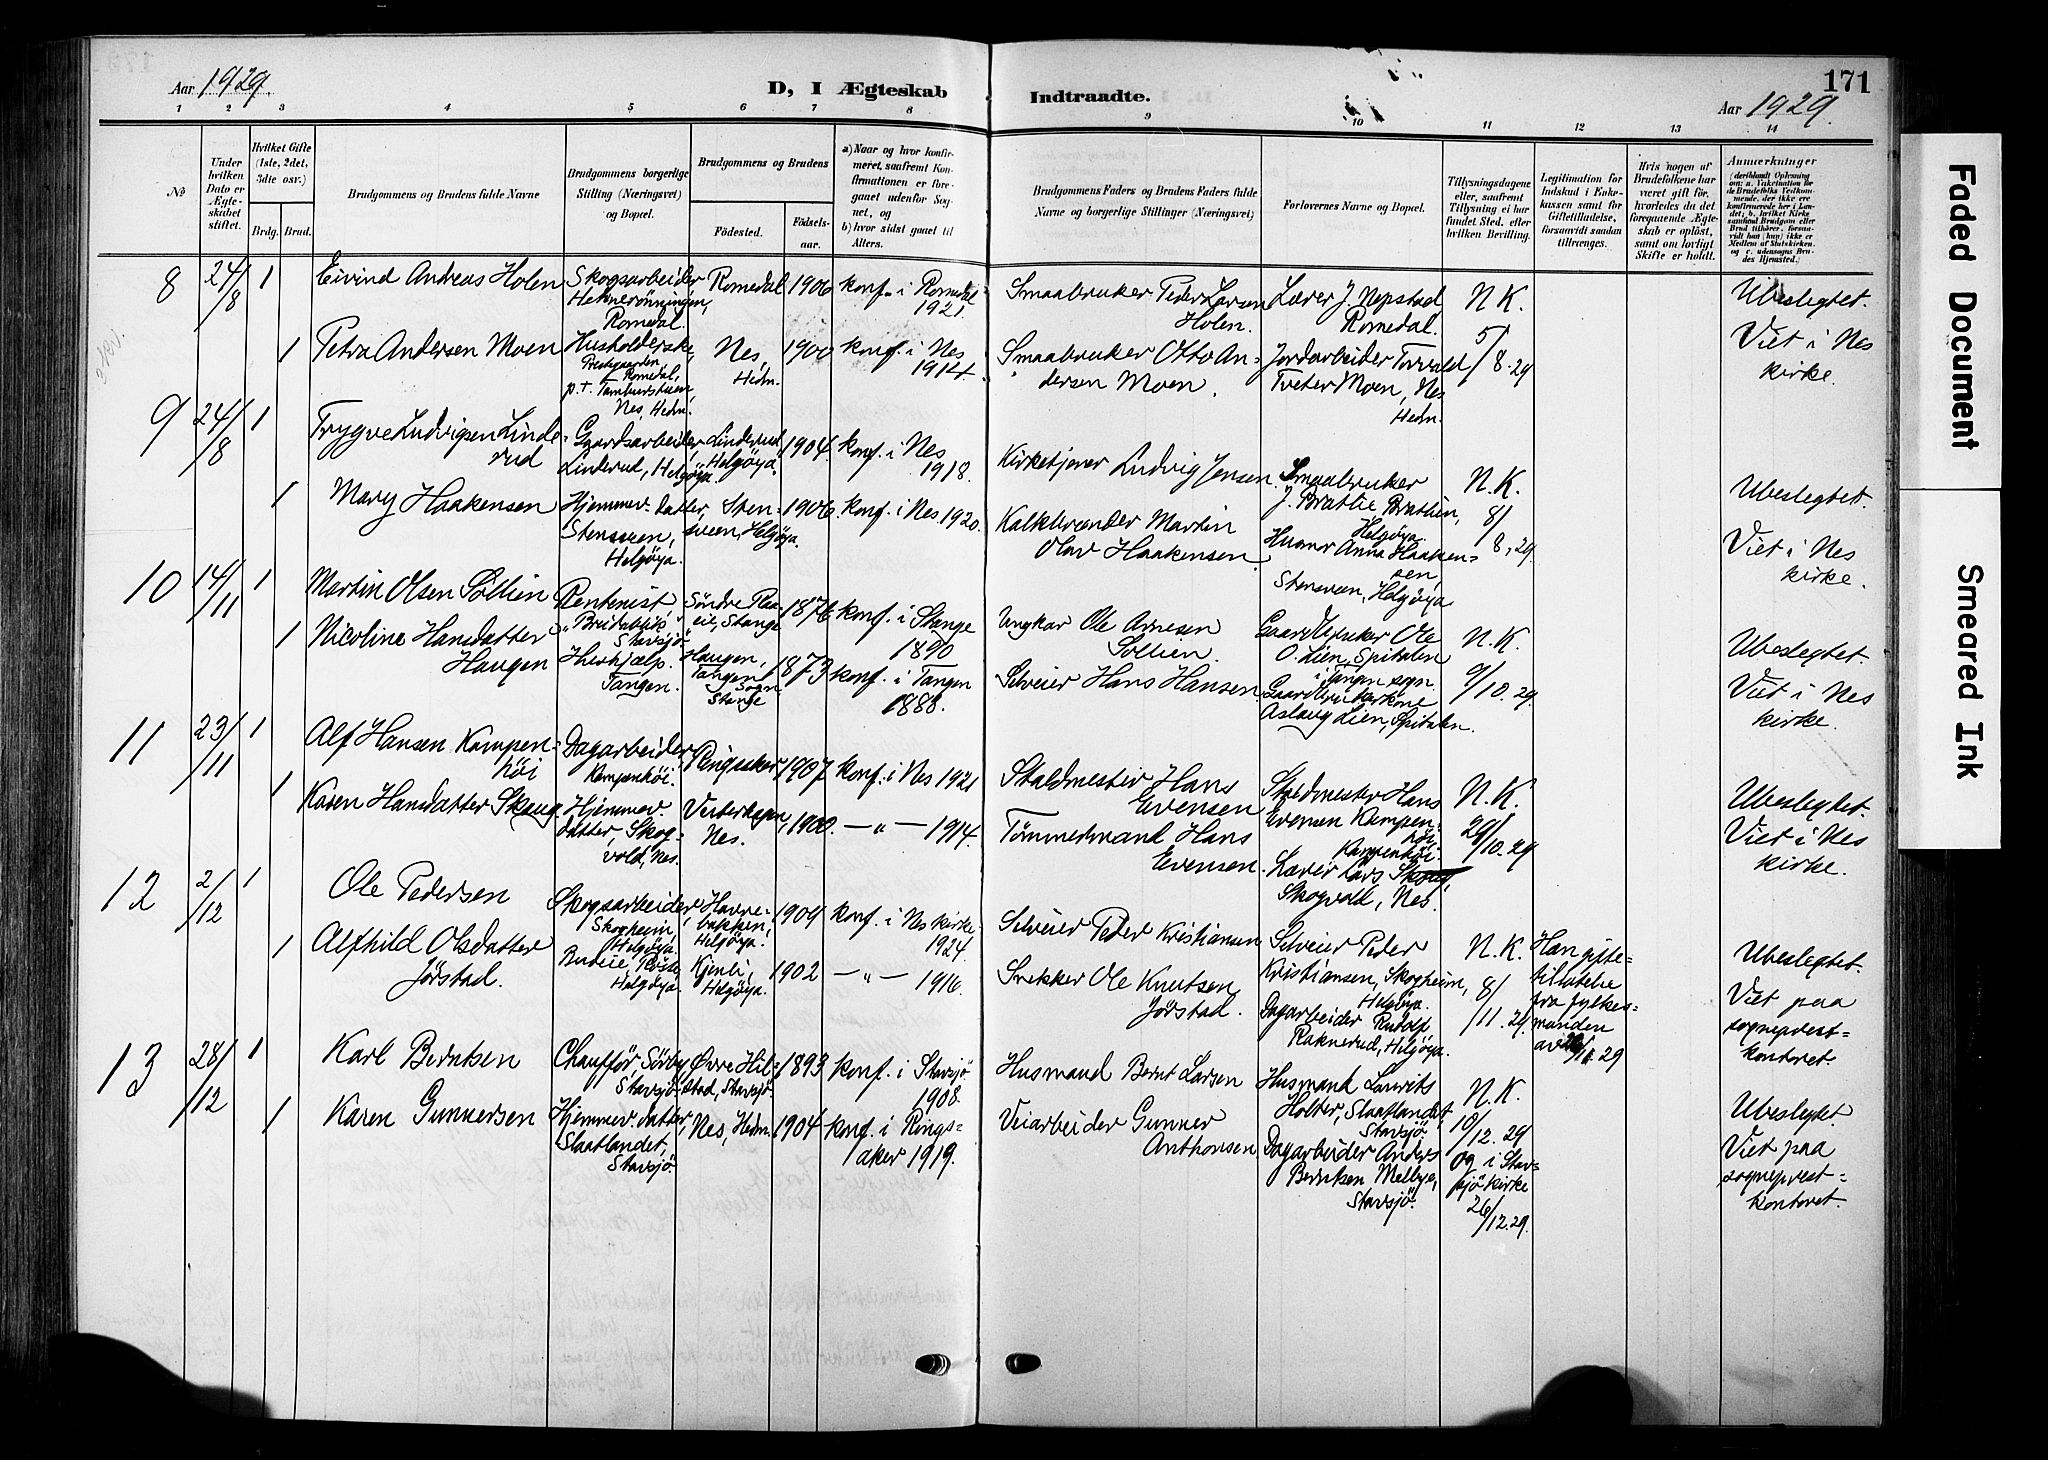 171
Aar 1929.
D, I Ægteskab
Indtraadte.
Aar 1929.
1 2 3 4 5 6 7 8 9 10 11 12 13 14
No
Under hvilken Dato er Ægteskabet stiftet.
Hvilket Gifte (1ste, 2det, 3die osv.)
Brdg. Brud.
Brudgommens og Brudens fulde Navne
Brudgommens borgerlige Stilling (Næringsvei) og Bopæl.
Brudgommens og Brudens
Fødested.
Fødselsaar.
a) Naar og hvor konfirmeret, saafremt Konfirmationen er foregaaet udenfor Sognet, og
b) hvor sidst gaaet til Alters.
Brudgommens Faders og Brudens Faders fulde Navne og borgerlige Stillinger (Næringsvei)
Forlovernes Navne og Bopæl.
Tillysningsdagene eller, saafremt Tillysning ei har fundet Sted, efter hvilken Bevilling.
Legitimation for Indskud i Enkekassen samt for Giftetilladelse, forsaavidt saadan tiltrænges.
Hvis nogen af Brudefolkene har været gift før, hvorledes da det foregaaende Ægteskab er opløst, samt om lovligt Skifte er holdt.
Anmærkninger (deriblandt Oplysning om: a. Vakcination for de Brudefolks Vedkommende, der ikke ere konfirmerede her i Landet; b. hvilket Kirkesamfund Brudgom eller Brud tilhører, forsaavidt han (hun) ikke er Medlem af Statskirken, og c. udensogns Brudes Hjemsted.)
8 24/8 1 Eivind Andreas Holen
Skogsarbeider
Heknerönningen,
Romedal.
Romedal 1906 konf. i Romedal
1921.
Smaabruker Peder Larsen
Holen.
Lærer J. Nepstad
Romedal.
N.K.
5/8.29
Ubeslegtet.
Viet i Nes
kirke.
1 Petra Andersen Moen
Husholderske
Prestgaarden
Romedal,
p.t. Tamburstuen,
Nes, Hedm.
Nes,
Hedm.
1900 konf. i Nes
1914.
Smaabruker Otto An-
dersen Moen.
Jordarbeider Torvald
Tveter Moen, Nes
Hedm.
9 24/8 1 Trygve Ludvigsen Linde-
rud
Gaardsarbeider,
Linderud, Helgöya.
Linderud
Helgöya.
1904 konf. i Nes
1918.
Kirketjener Ludvig Jensen.
Smaabruker
J. Brattlie, Bratlien,
Helgöya.
N.K.
8/8.29
Ubeslegtet.
Viet i Nes
kirke.
1 Mary Haakensen
Hjemmev. datter,
Stensveen,
Helgöya.
Sten-
sveen, Helgöya.
1906 konf. i Nes 1920.
Kalkbrænder Martin
Olav Haakensen.
Husmor Anna Haaken-
sen,
Stensveen, Helgöya
10 14/11 1 Martin Olsen Sollien
Rentenist
"Breidablik"
Stavsjö
Söndre Raa-
eie, Stange
1876 konf. i Stange
1890
Ungkar Ole Arnesen
Sollien.
Gaardbruker Ole
O. Lien, Spitalen
i Tangen sogn.
N.K.
9/10.29
Ubeslegtet.
Viet i Nes
kirke.
1 Nicoline Hansdatter
Haugen
Hushjælp.
Tangen.
Haugen,
Tangen
Sogn
Stange
1873 konf. i Tangen
1888.
Selveier Hans Hansen
Gaardbrukerkone
Aslaug Lien, Spitalen.
11 23/11 1 Alf Hansen Kampen-
höi
Dagarbeider
Kampenhöi.
Ringsaker 1907 konf. i Nes 1921
Staldmester Hans
Evensen
Staldmester Hans
Evensen Kampen-
höi
Kampenhöi.
N.K.
29/10.29
Ubeslegtet.
Viet i Nes
kirke.
1 Karen Hansdatter Skaug
Hjemmev.
datter, Skog-
vold, Nes.
Vesterhagen,
Nes.
1900. — " — 1914.
Tömmermand Hans
Evensen.
Lærer Lars Skaug,
Skogvold, Nes.
12 2/12 1 Ole Pedersen
Skogsarbeider
Skogheim,
Helgöya
Havre-
bakken,
Helgöya.
1909 konf. i Nes kirke
1924.
Selveier Peder Kristiansen
Selveier Peder
Kristiansen, Skogheim,
Helgöya.
N.K.
8/11.29.
Han gifte-
tillatelse
fra fylkes-
manden
av
11 29
Ubeslegtet.
Viet paa
sogneprest-
kontoret.
1 Alfhild Olsdatter
Jörstad.
Budeie
Helgöya.
Kjenli,
Helgöya.
1902 — " — 1916.
Snekker Ole Knutsen
Jörstad.
Dagarbeider Rudolf
Raknerud, Helgöya.
13 28/12 1 Karl Berntsen
Chauffør, Sörby
Stavsjö
Øvre Hil-
stad, Stavsjö.
1893 konf. i Stavsjö
1908.
Husmand Bernt Larsen
Husmand Laurits
Holter, Slaatlandet,
Stavsjö.
N.K.
10/12.29
og i Stav-
sjö kirke
26/12.29.
Ubeslegtet.
Viet paa
sogneprest-
kontoret.
1 Karen Gunnersen
Hjemmev. datter,
Slaatlandet,
Stavsjö
Nes, Hedm. 1904 konf. i Rings-
aker 1919.
Veiarbeider Gunner
Anthonsen
Dagarbeider Anders
Berntsen Melbye,
Stavsjö.
Faded Document
Smeared Ink